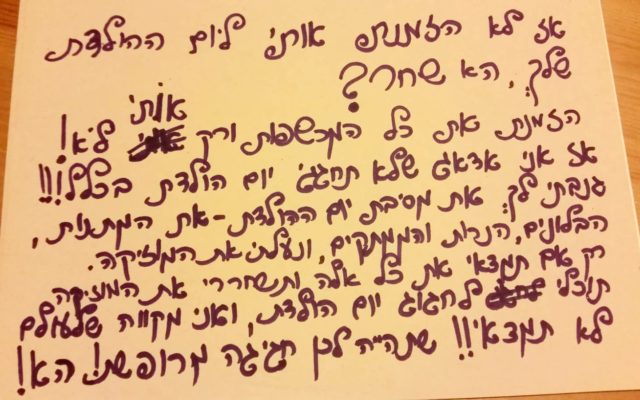 אז לא הזמנת אותי ליום ההולדת
שלך, הא שחר?
אותי
הזמנת את כל המכשפות ורק לא!
אז אני אדאג שלא תחגגי יום הולדת בכלל!!!
גנבתי לך את מסיבת יום ההולדת - את המתנות,
הבלונים, הנרות והממתקים, ונעלתי את המוזיקה.
רק אם תמצאי את כל אלה ותשחררי את המוזיקה
תוכלי לחגוג יום הולדת, ואני מקווה שלעולם
לא תמצאי!! שתהייה לכן חגיגה מרופשת! הא!